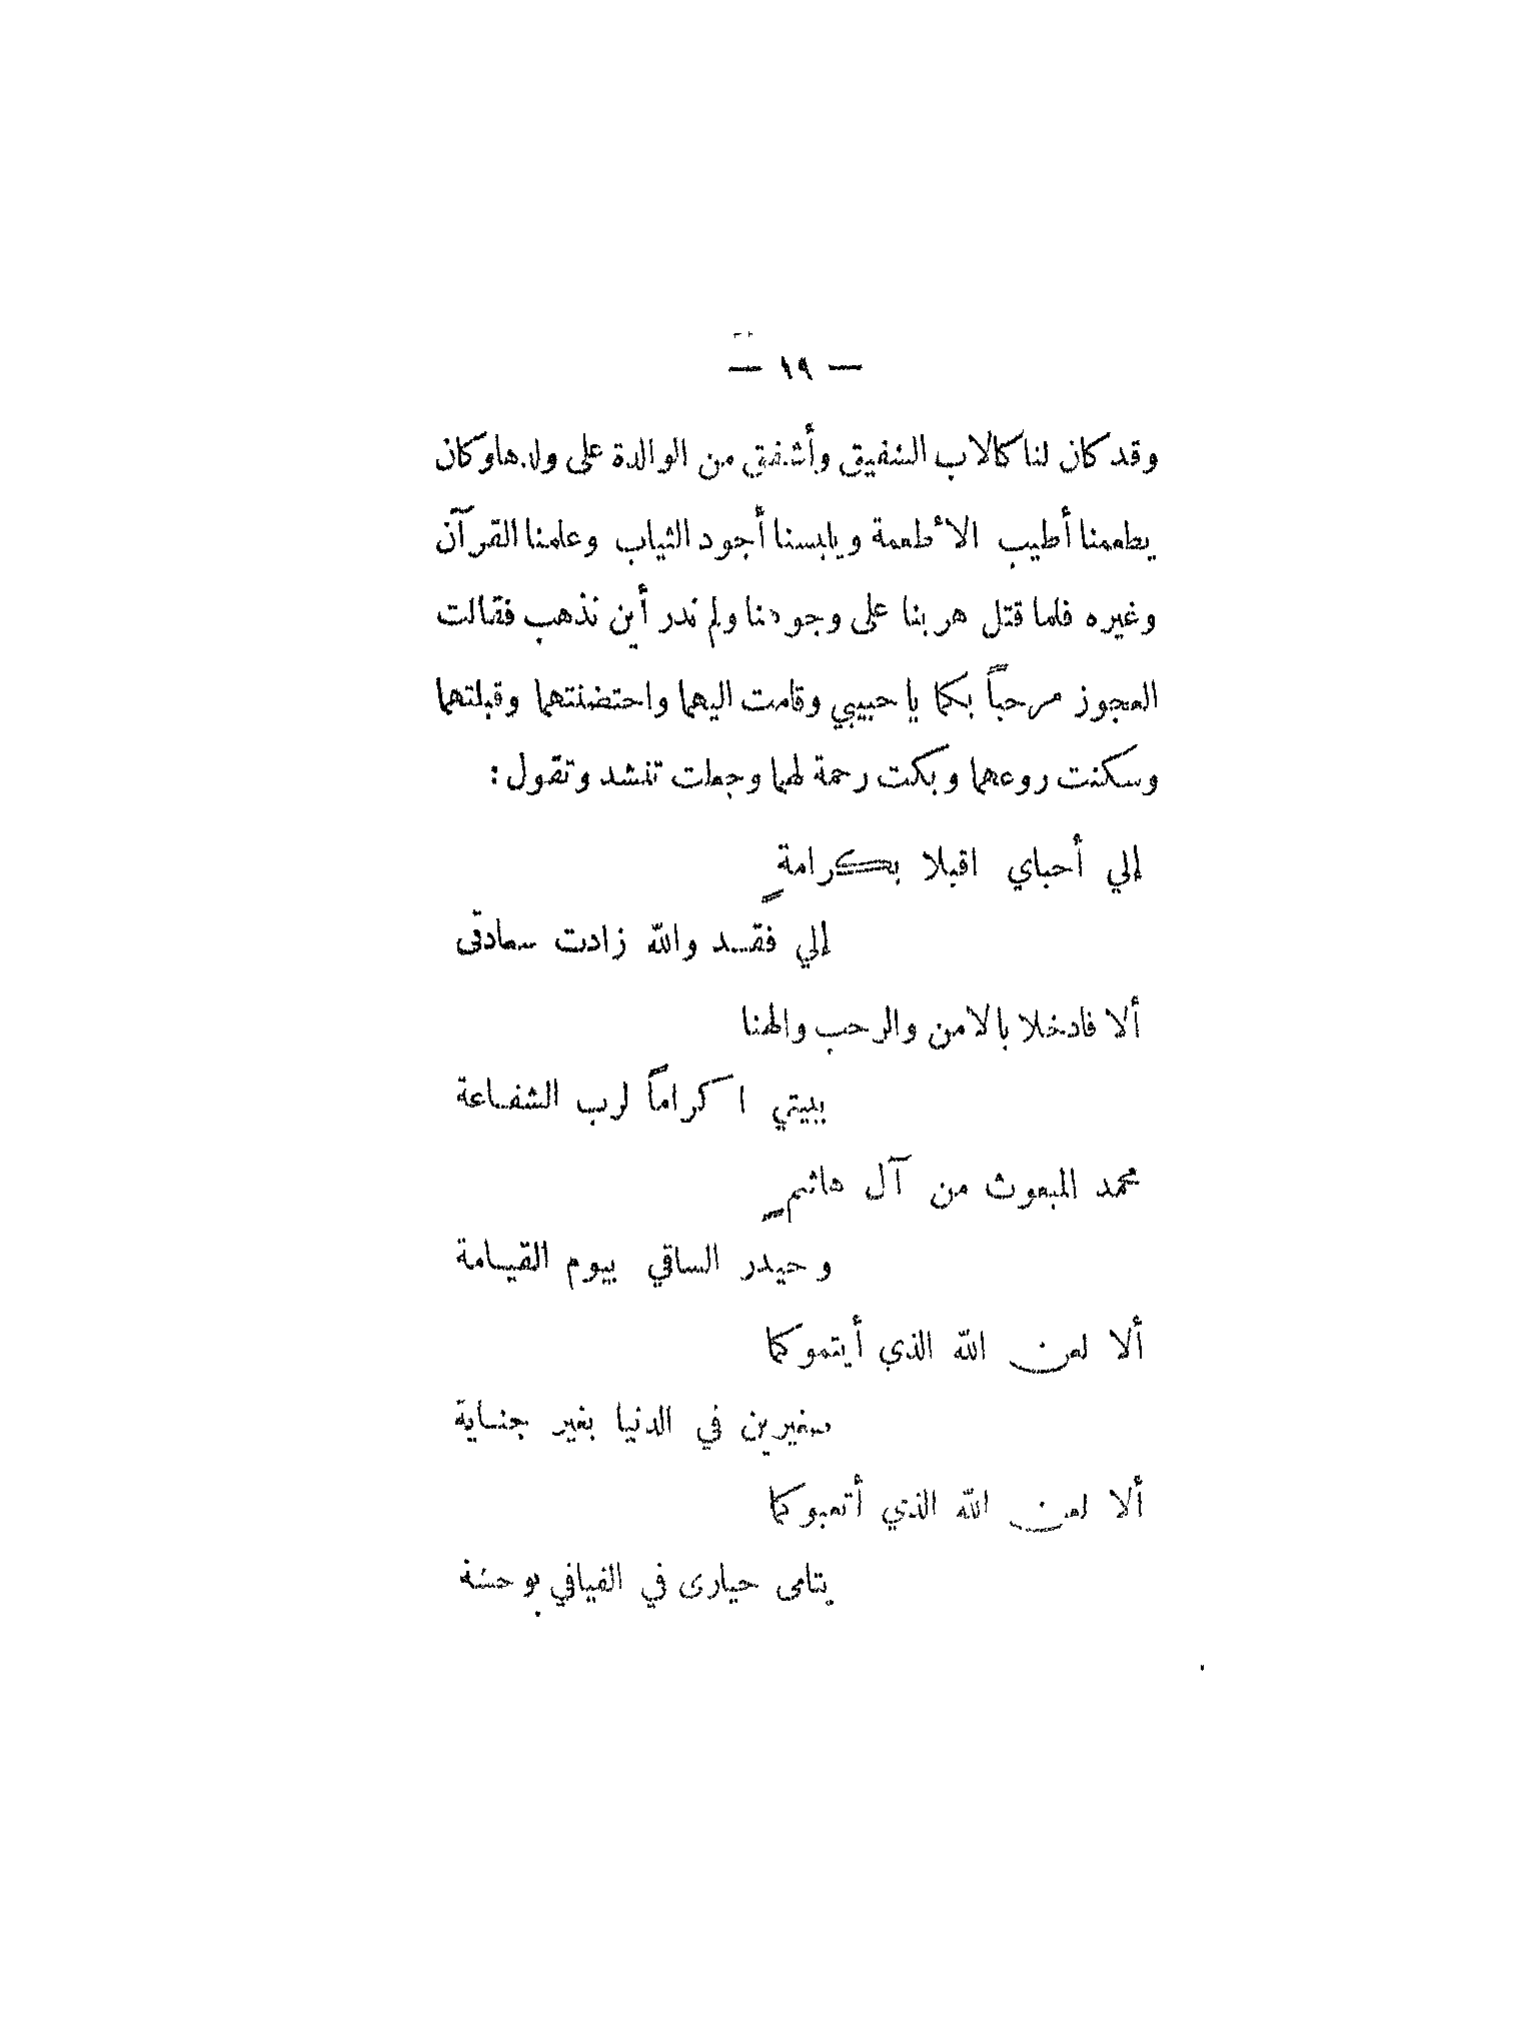 — ١٩ —
وقد كان لنا كالاب الشفيق وأشفق من الوالدة على ولدها وكان
يطعمنا أطيب الأطعمة ويلبسنا أجود الثياب وعلمنا القرآن
وغيره فلما قتل هربنا على وجوهنا ولم ندر أين نذهب فقالت
العجوز مرحباً بكما يا حبيبي وقامت اليهما واحتضنتهما وقبلتهما
وسكنت روعهما وبكت رحمة لهما وجعلت تنشد وتقول :
إلي أحباي اقبلا بكرامةٍ
إلي فقد والله زادت سعادتى
ألا فادخلا بالامن والرحب والهنا
ببيتي اكراماً لرب الشفاعة
محمد المبعوث من آل هاشمٍ
وحيدر الساقي بيوم القيامة
ألا لعن الله الذي أيتموكما
صغيرين في الدنيا بغير جناية
ألا لعن الله الذي أتعبوكما
يتامى حيارى في الفيافي بوحشة